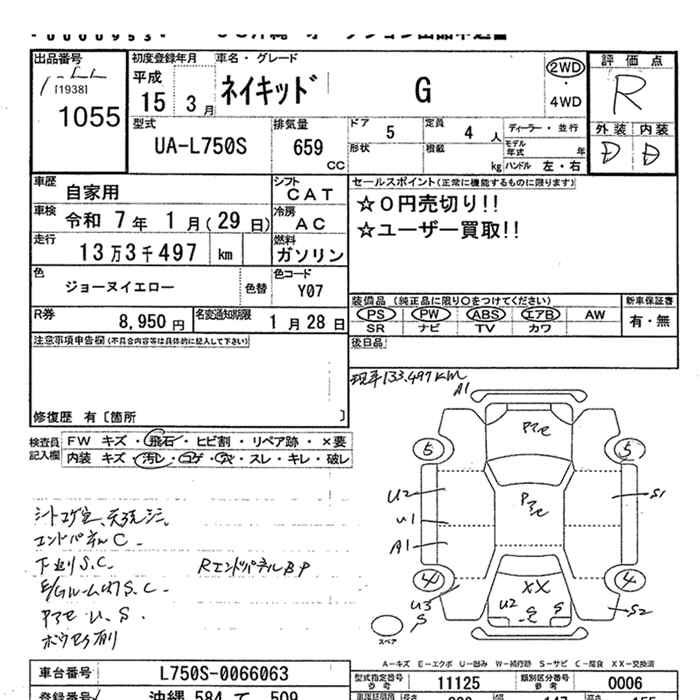 0000953
出品番号
[1938]
1055
初度登録年月
平成
15 3月
車名・グレード
ネイキッド G
2WD
・
4WD
評価点
R
外装 内装
D D
型式
UA-L750S
排気量
659
cc
ドア 5
定員 4 人
ディーラー・並行
形状
積載 kg
モデル年式 年
ハンドル 左・右
車歴 自家用
シフト CAT
車検 令和 7年 1月(29日)
冷房 AC
走行 13万3千497 km
燃料 ガソリン
色 ジョーヌイエロー 色替
色コード Y07
R券 8,950円
名変通知期限 1月28日
セールスポイント(正常に機能するものに限ります)
☆0円売切り!!
☆ユーザー買取!!
装備品(純正品に限り○をつけてください)
新車保証書
PS PW ABS エアB AW
SR ナビ TV カワ
有・無
後日品
注意事項申告欄(不具合内容等は具体的に記入して下さい)
修復歴 有〔箇所 〕
現車133,497KM
検査員記入欄
FW キズ・飛石・ヒビ割・リペア跡・×要
内装 キズ・汚レ・コゲ・穴・スレ・キレ・破レ
シートコゲ穴、
エンドパネルC
下廻りS.C.
RエンドパネルBP
アマセ U.S.
A1
アマセ
5 5
U2
アマセ
S1
U1
A1
4 4
XX
U3
S
U2 S S
S2
スペア
A-キズ E-エクボ U-凹み W-補修跡 S-サビ C-腐食 XX-交換済
車台番号 L750S-0066063
型式指定番号 参考 11125
類別区分番号 参考 0006
登録番号 沖縄 584 て 509